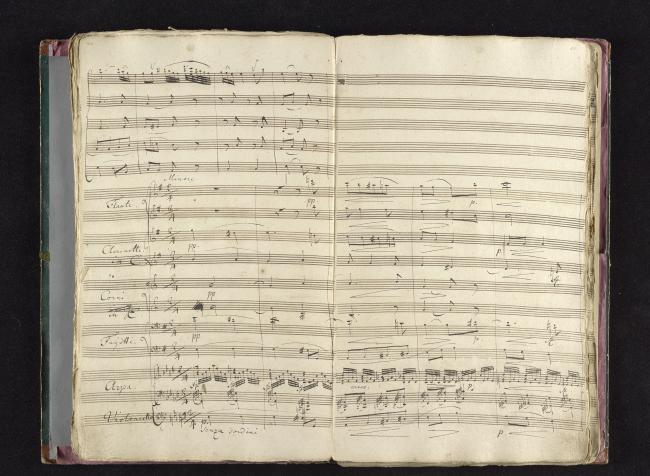 Minore
Flauti.
pp.
Clarinetti
in C
pp.
Corni
pp
in
Fagotti.
pp
Arpa.
Violoncello
Senza sordini
pp.
p.
p
p.
cresc.
p.
p